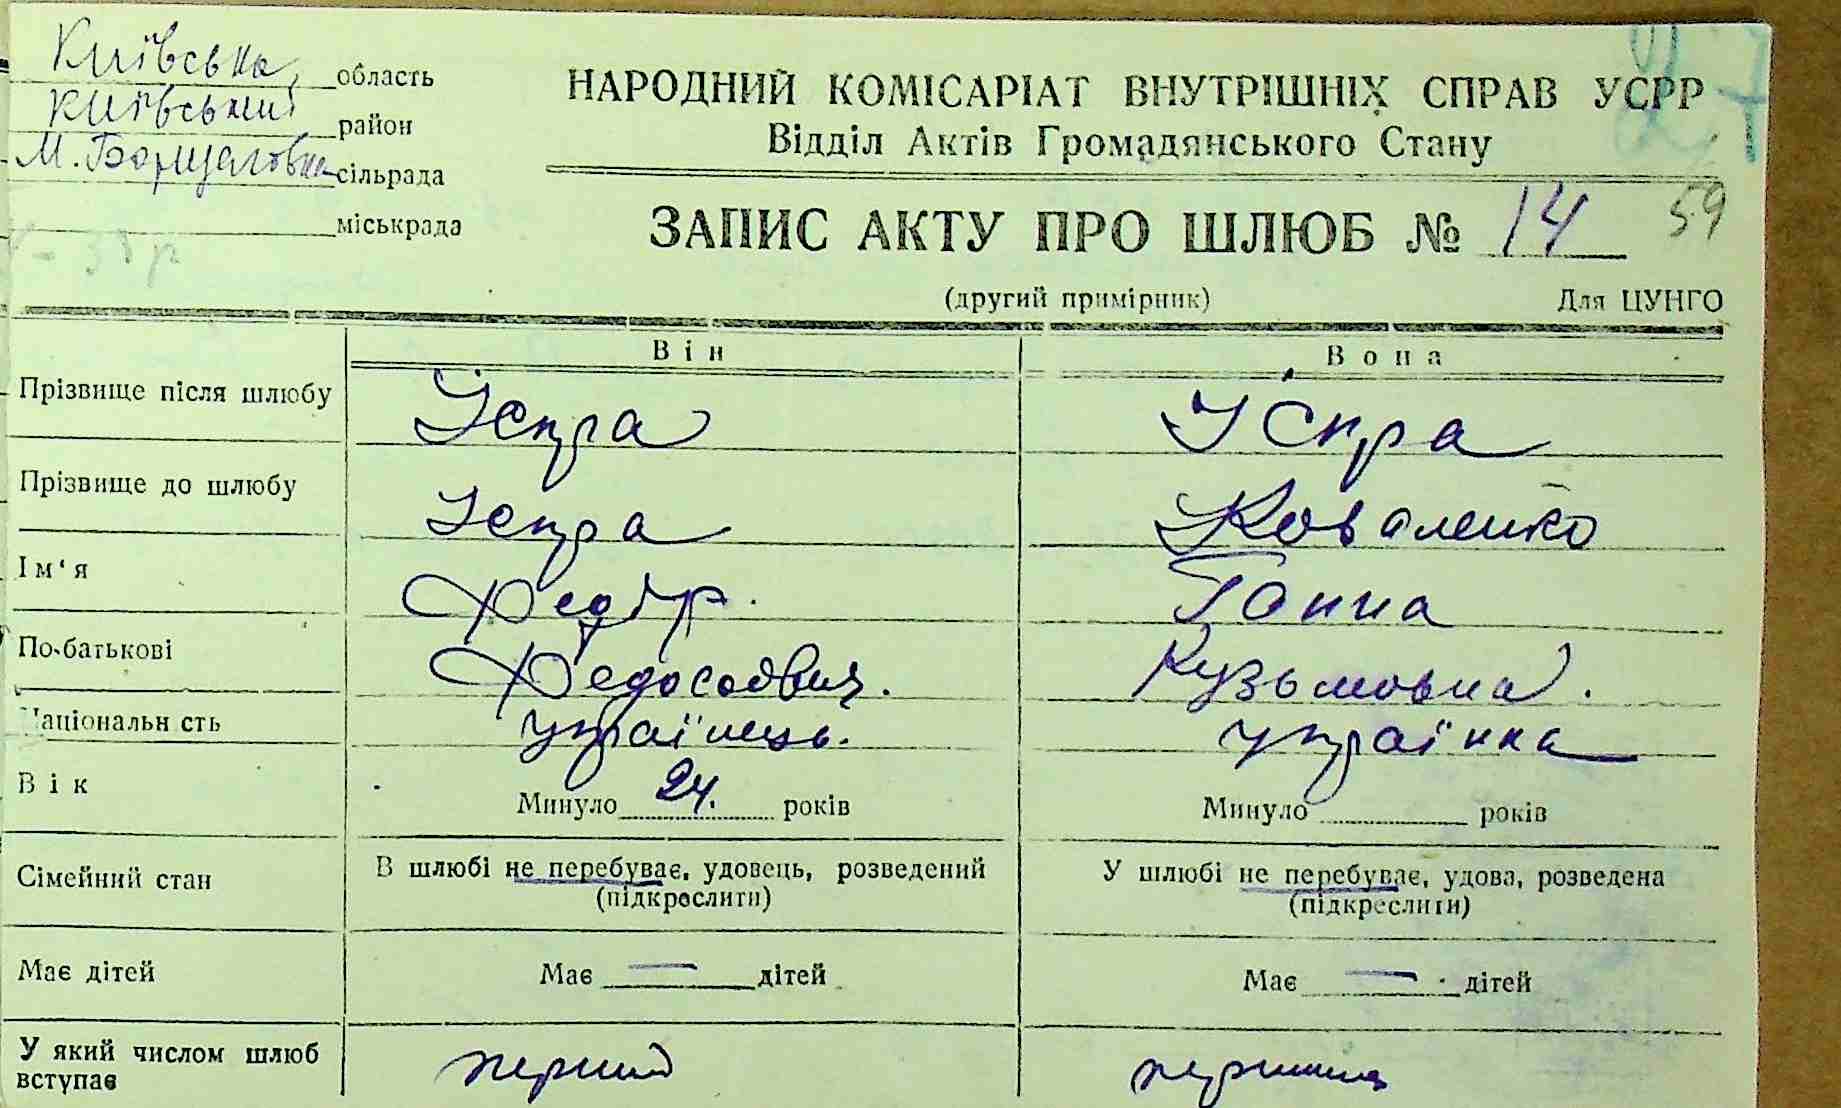 Київська область
Київський район
М. Борщагівка сільрада
міськрада
НАРОДНИЙ КОМІСАРІАТ ВНУТРІШНІХ СПРАВ УСРР
Відділ Актів Громадянського Стану
ЗАПИС АКТУ ПРО ШЛЮБ № 14
59
(другий примірник) Для ЦУНГО
Він Вона
Прізвище після шлюбу Іспра Іспра
Прізвище до шлюбу Іспра Коваленко
Ім'я Федір Ганна
По-батькові Федосович Кузьмовна
Національн сть українець українка
Вік Минуло 24 років Минуло років
Сімейний стан В шлюбі не перебуває, удовець, розведений У шлюбі не перебуває, удова, розведена
(підкреслити) (підкреслити)
Має дітей Має — дітей Має — дітей
У який числом шлюб вступає перший